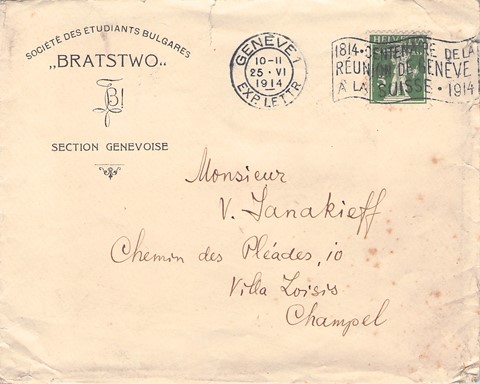 SOCIÉTÉ DES ETUDIANTS BULGARES
„BRATSTWO„
B
SECTION GENEVOISE
GENÈVE 1
10-11
25·VI
1914
EXP. LETTR
HELVETIA
1814·CENTENAIRE DE LA
RÉUNION DE GENÈVE
A LA SUISSE·1914
Monsieur
V. Janakieff
Chemin des Pléades, 10
Villa Loisis
Champel